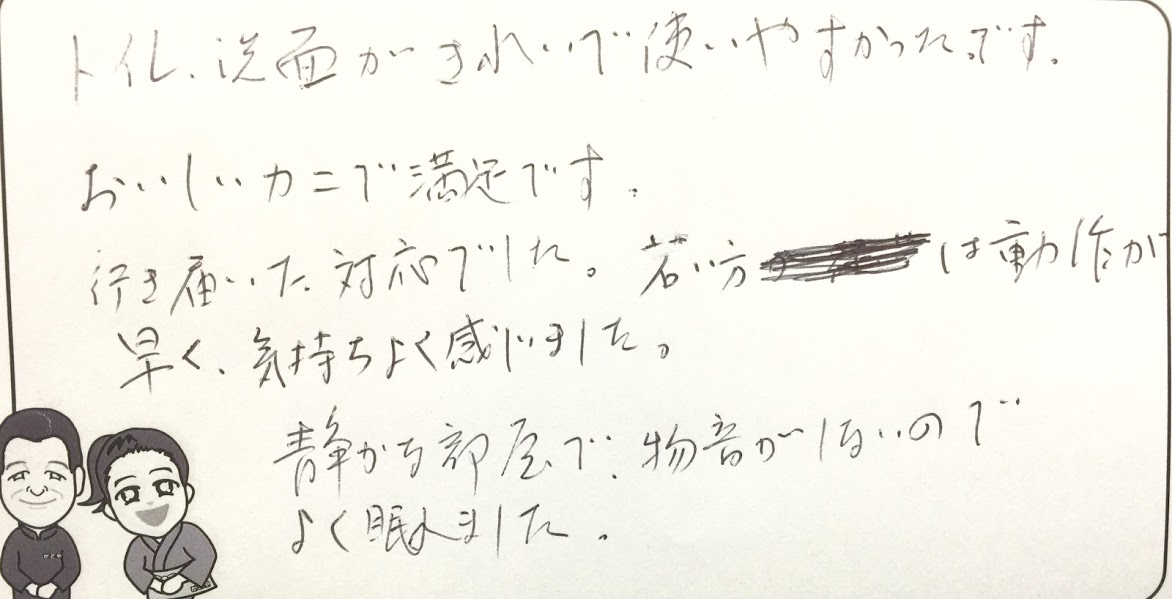 トイレ、洗面がきれいで使いやすかったです。
おいしいカニで満足です。
行き届いた対応でした。若い方は動作が
早く、気持ちよく感じました。
静かな部屋で、物音がしないので
よく眠れました。